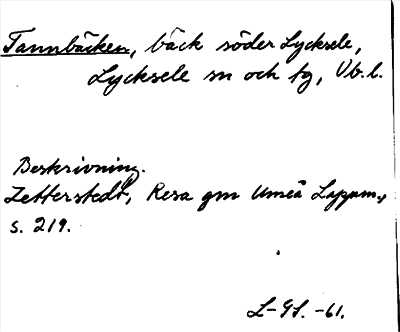 Tannbäcken, bäck söder Lycksele,
Lycksele sn och tg, Vb. l.
Beskrivning.
Zetterstedt, Resa gm Umeå Lappm.,
s. 219.
L-GL. -61.